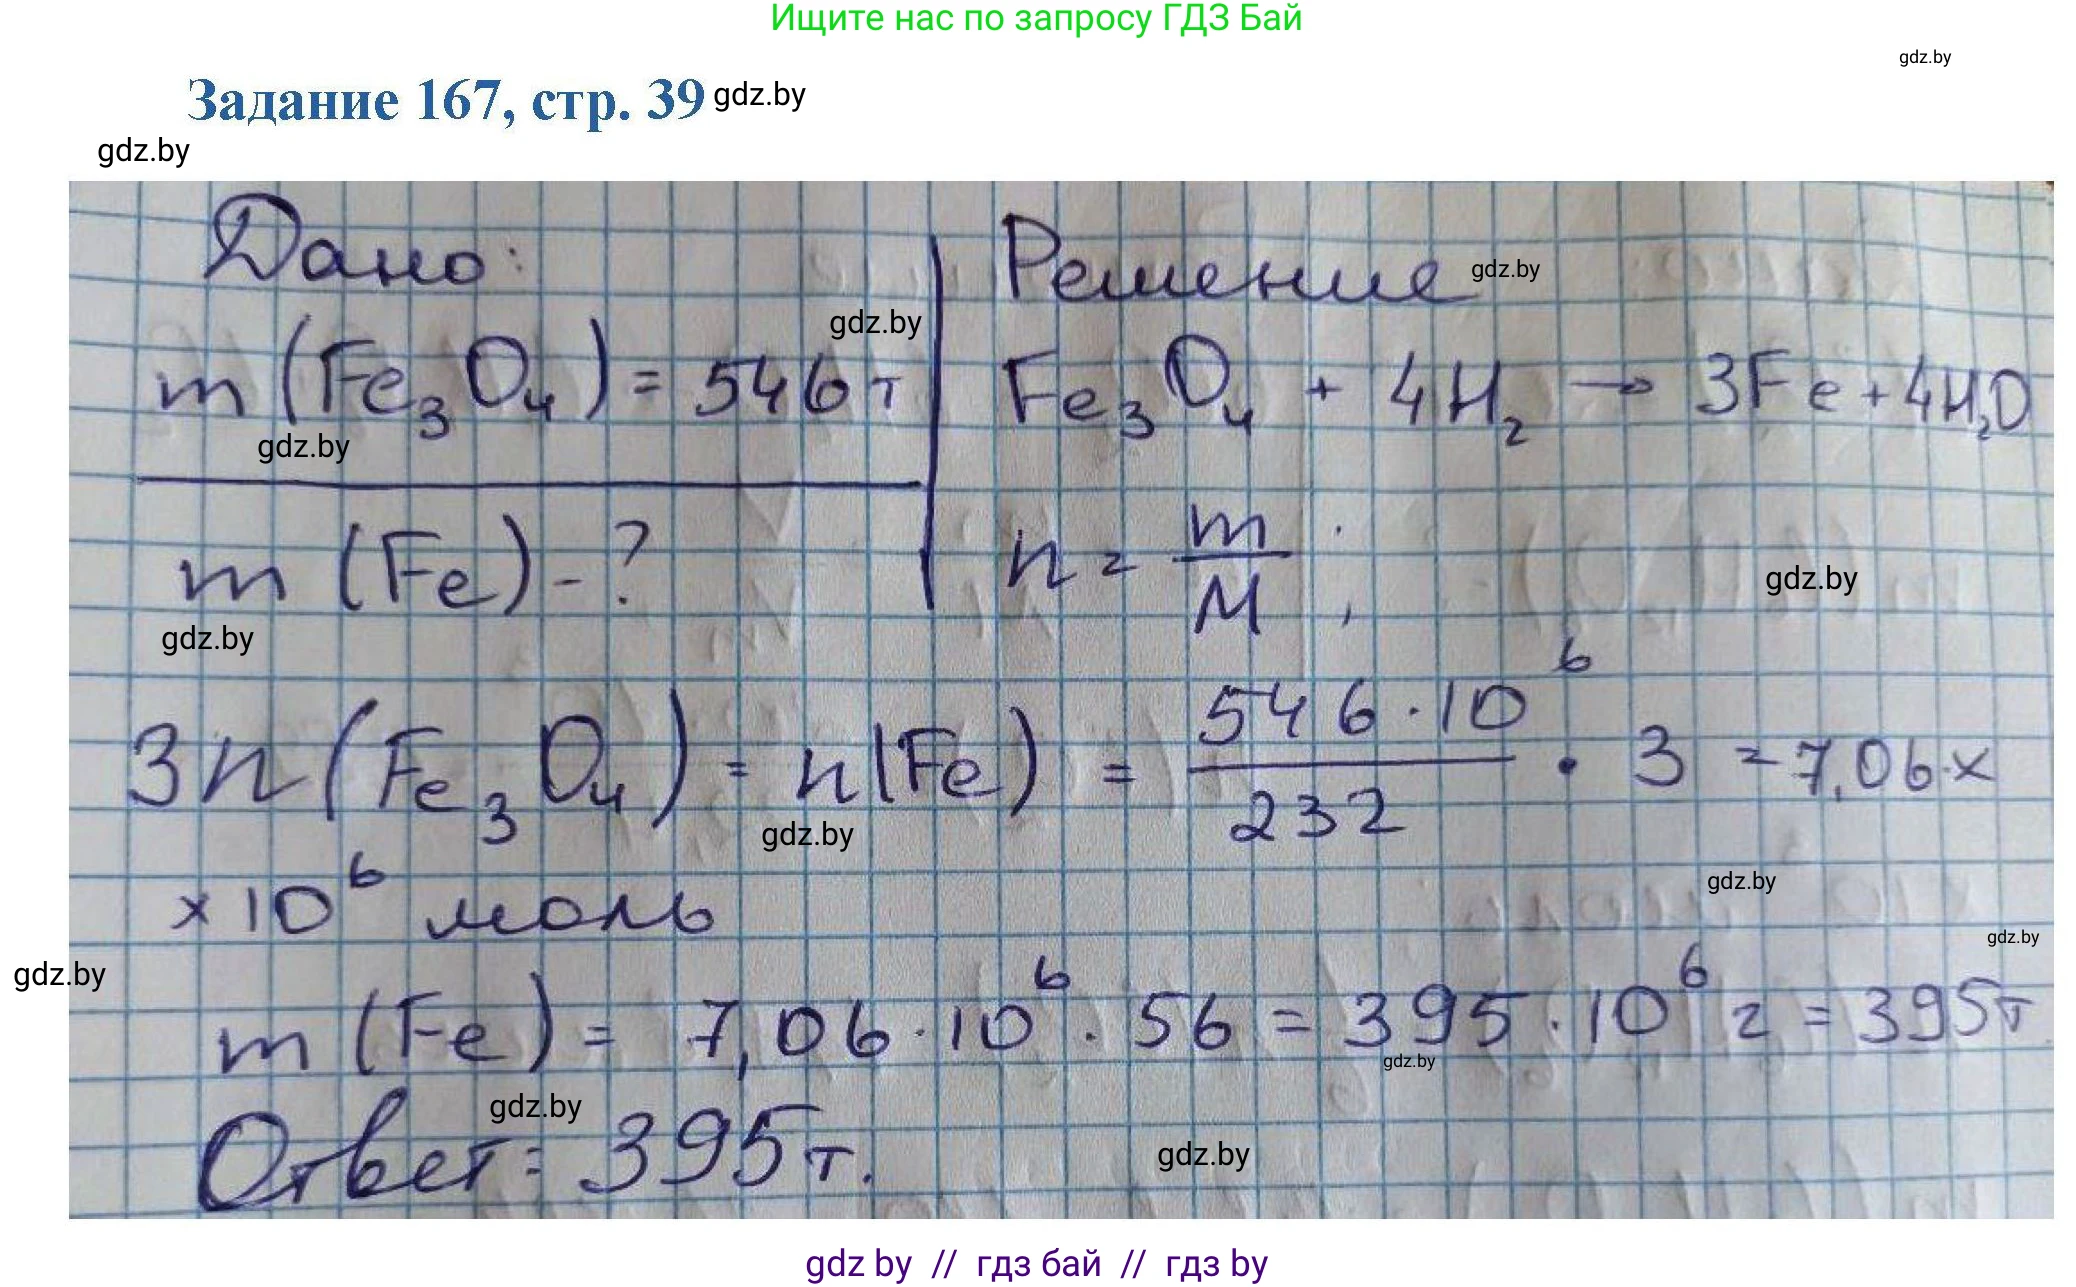 Ищите нас по запросу ГДЗ Бай
gdz.by
Задание 167, стр. 39 gdz.by
gdz.by
Дано: Решение gdz.by
gdz.by
m (Fe3O4) = 546 т Fe3O4 + 4H2 → 3Fe + 4H2O
gdz.by
m (Fe) - ? n = m/M ;
gdz.by
gdz.by
3n (Fe3O4) = n(Fe) = 546·10^6/232 · 3 = 7,06 ×
gdz.by
× 10^6 моль
gdz.by
gdz.by
gdz.by
m (Fe) = 7,06·10^6 · 56 = 395·10^6 г = 395 т
gdz.by
gdz.by
Ответ: 395 т.
gdz.by
gdz by // гдз бай // гдз by